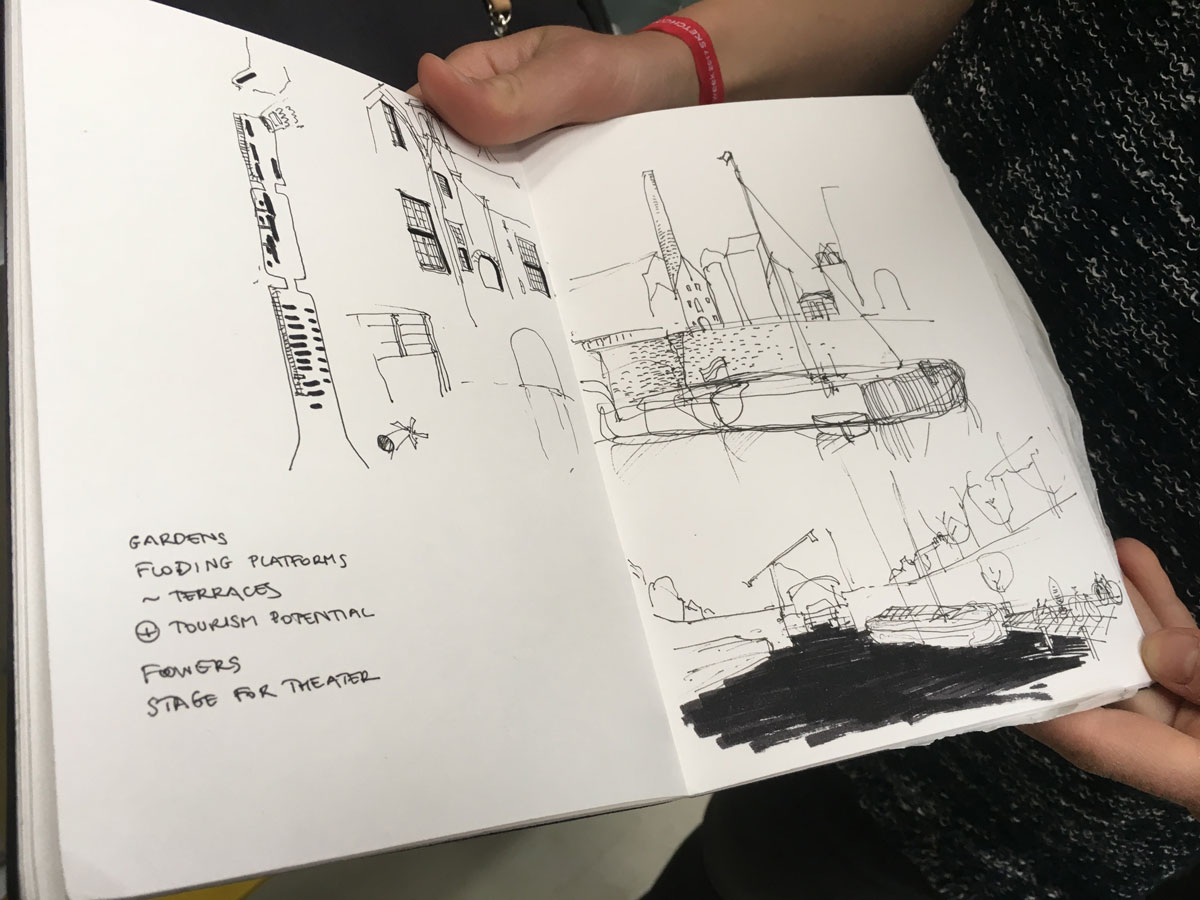 GARDENS
FLODING PLATFORMS
~ TERRACES
⊕ TOURISM POTENTIAL
FOWERS
STAGE FOR THEATER